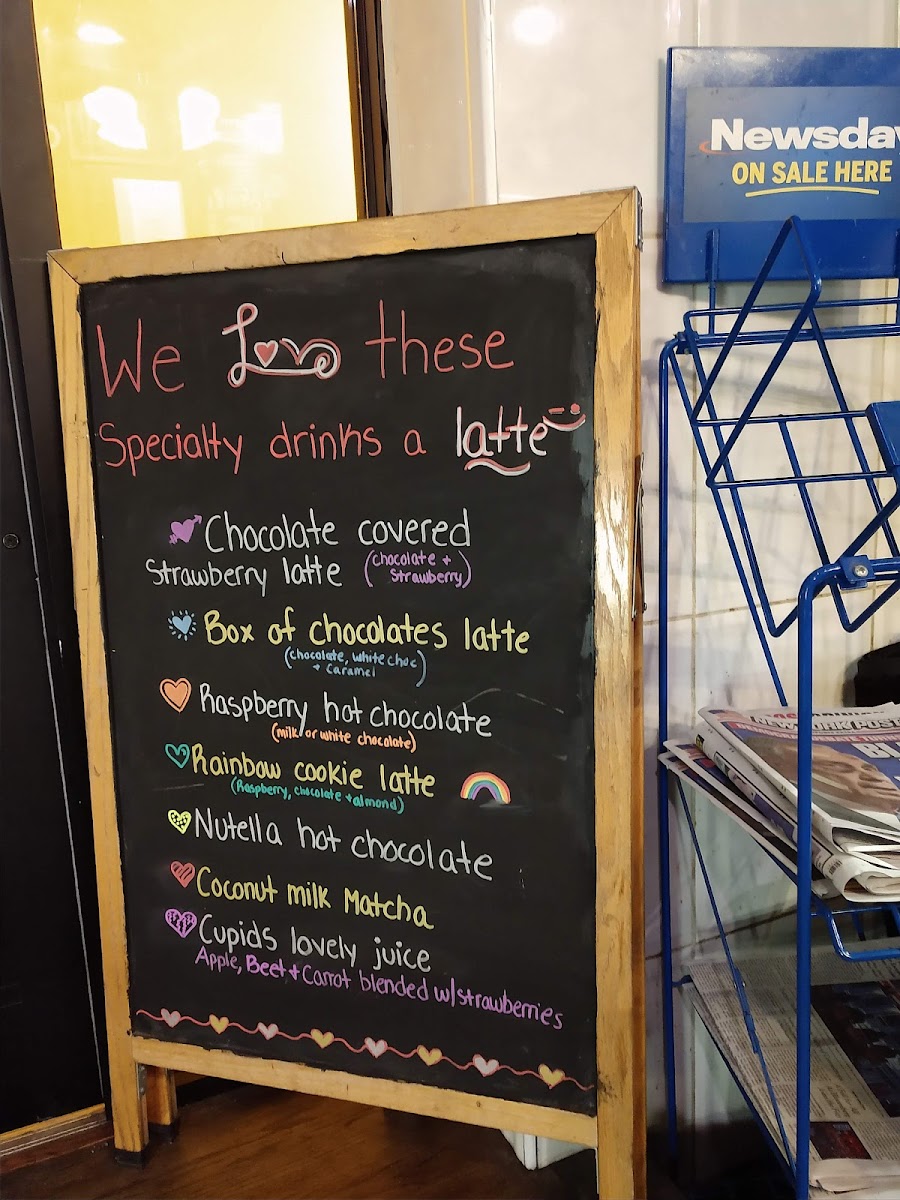 Newsday
ON SALE HERE
We Love these
Specialty drinks a latte
Chocolate covered
Strawberry latte (chocolate +
Strawberry)
Box of chocolates latte
(chocolate, white choc
+ caramel)
Raspberry hot chocolate
(milk or white chocolate)
Rainbow cookie latte
(Raspberry, chocolate + almond)
Nutella hot chocolate
Coconut milk Matcha
Cupids lovely juice
Apple, Beet + Carrot blended w/strawberries
NEW YORK POST